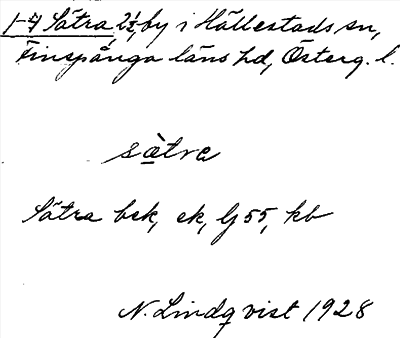 1-4 Sätra, 2½, by i Hällestads sn,
Finspånga läns hd, Österg. l.
sàtra
Sätra bsk, ek, Gj 55, kb
N. Lindqvist 1928